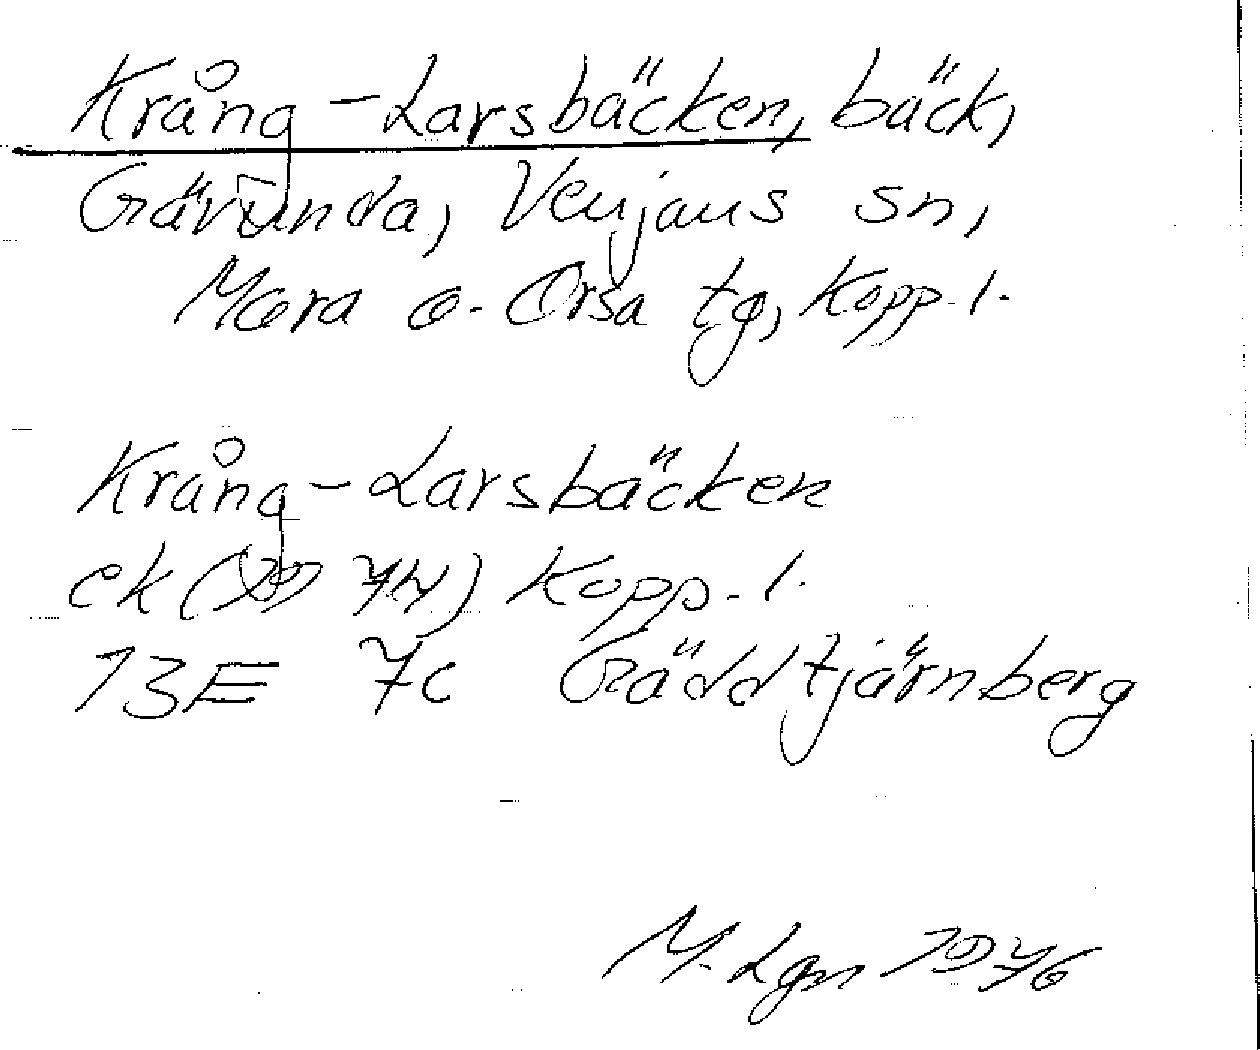 Krång-Larsbäcken, bäck,
Gävunda, Venjans sn,
Mora o. Orsa tg, Kopp. l.
Krång-Larsbäcken
ek (1974) Kopp. l.
13E 7c Gäddtjärnberg
M. Lgn 1976